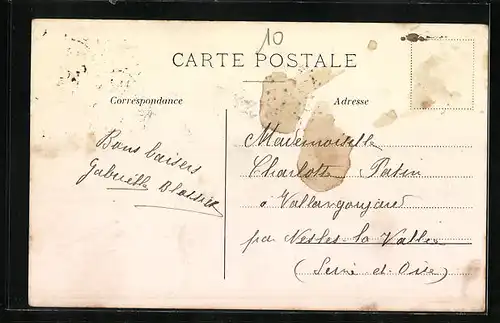 10
CARTE POSTALE
Correspondance
Adresse
Bons baisers
Gabrielle
Mademoiselle
Charlotte Patin
à Vallangoujard
par Nesles-la-Vallée
(Seine-et-Oise)